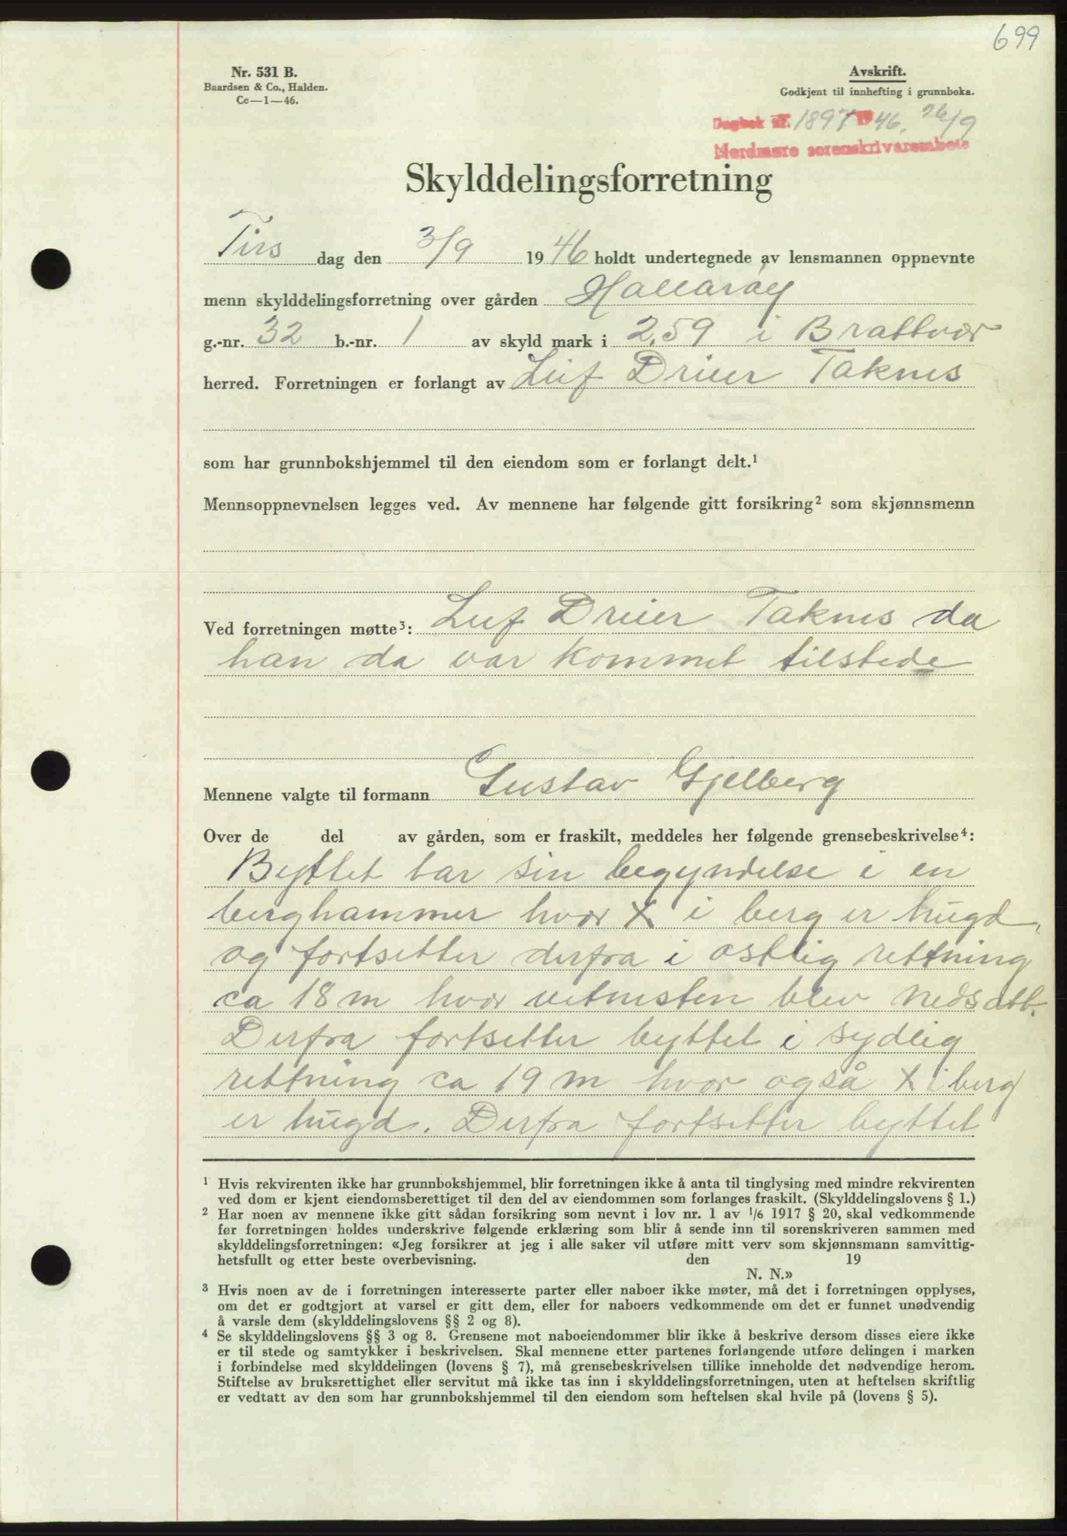 699
Nr. 531 B.
Baardsen & Co., Halden.
Cc—1—46.
Avskrift.
Godkjent til innhefting i grunnboka.
Dagbok nr. 1897 1946. 26/9
Nordmøre sorenskriverembete
Skylddelingsforretning
Tirs dag den 3/9 1946 holdt undertegnede av lensmannen oppnevnte
menn skylddelingsforretning over gården Hallarøy
g.-nr. 32 b.-nr. 1 av skyld mark i 2.59 i Brattvær
herred. Forretningen er forlangt av Leif Dreier Taknes
som har grunnbokshjemmel til den eiendom som er forlangt delt.¹
Mennsoppnevnelsen legges ved. Av mennene har følgende gitt forsikring² som skjønnsmenn
Ved forretningen møtte³: Leif Dreier Taknes da
han da var kommet tilstede
Mennene valgte til formann Gustav Gjelberg
Over de del av gården, som er fraskilt, meddeles her følgende grensebeskrivelse⁴:
Byttet tar sin begyndelse i en
berghammer hvor X i berg er hugd,
og fortsetter derfra i østlig rettning
ca 18 m hvor vitnesten blev nedsatt.
Derfra fortsetter byttet i sydlig
rettning ca 19 m hvor også X i berg
er hugd. Derfra fortsetter byttet
¹ Hvis rekvirenten ikke har grunnbokshjemmel, blir forretningen ikke å anta til tinglysing med mindre rekvirenten
ved dom er kjent eiendomsberettiget til den del av eiendommen som forlanges fraskilt. (Skylddelingslovens § 1.)
² Har noen av mennene ikke gitt sådan forsikring som nevnt i lov nr. 1 av 1/6 1917 § 20, skal vedkommende
før forretningen holdes underskrive følgende erklæring som blir å sende inn til sorenskriveren sammen med
skylddelingsforretningen: «Jeg forsikrer at jeg i alle saker vil utføre mitt verv som skjønnsmann samvittig-
hetsfullt og etter beste overbevisning. den 19
N. N.»
³ Hvis noen av de i forretningen interesserte parter eller naboer ikke møter, må det i forretningen opplyses,
om det er godtgjort at varsel er gitt dem, eller for naboers vedkommende om det er funnet unødvendig
å varsle dem (skylddelingslovens §§ 2 og 8).
⁴ Se skylddelingslovens §§ 3 og 8. Grensene mot naboeiendommer blir ikke å beskrive dersom disses eiere ikke
er til stede og samtykker i beskrivelsen. Skal mennene etter partenes forlangende utføre delingen i marken
i forbindelse med skylddelingen (lovens § 7), må grensebeskrivelsen tillike inneholde det nødvendige herom.
Stiftelse av bruksrettighet eller servitut må ikke tas inn i skylddelingsforretningen, uten at heftelsen skriftlig
er vedtatt av den som har grunnbokshjemmel til den eiendom som heftelsen skal hvile på (lovens § 5).